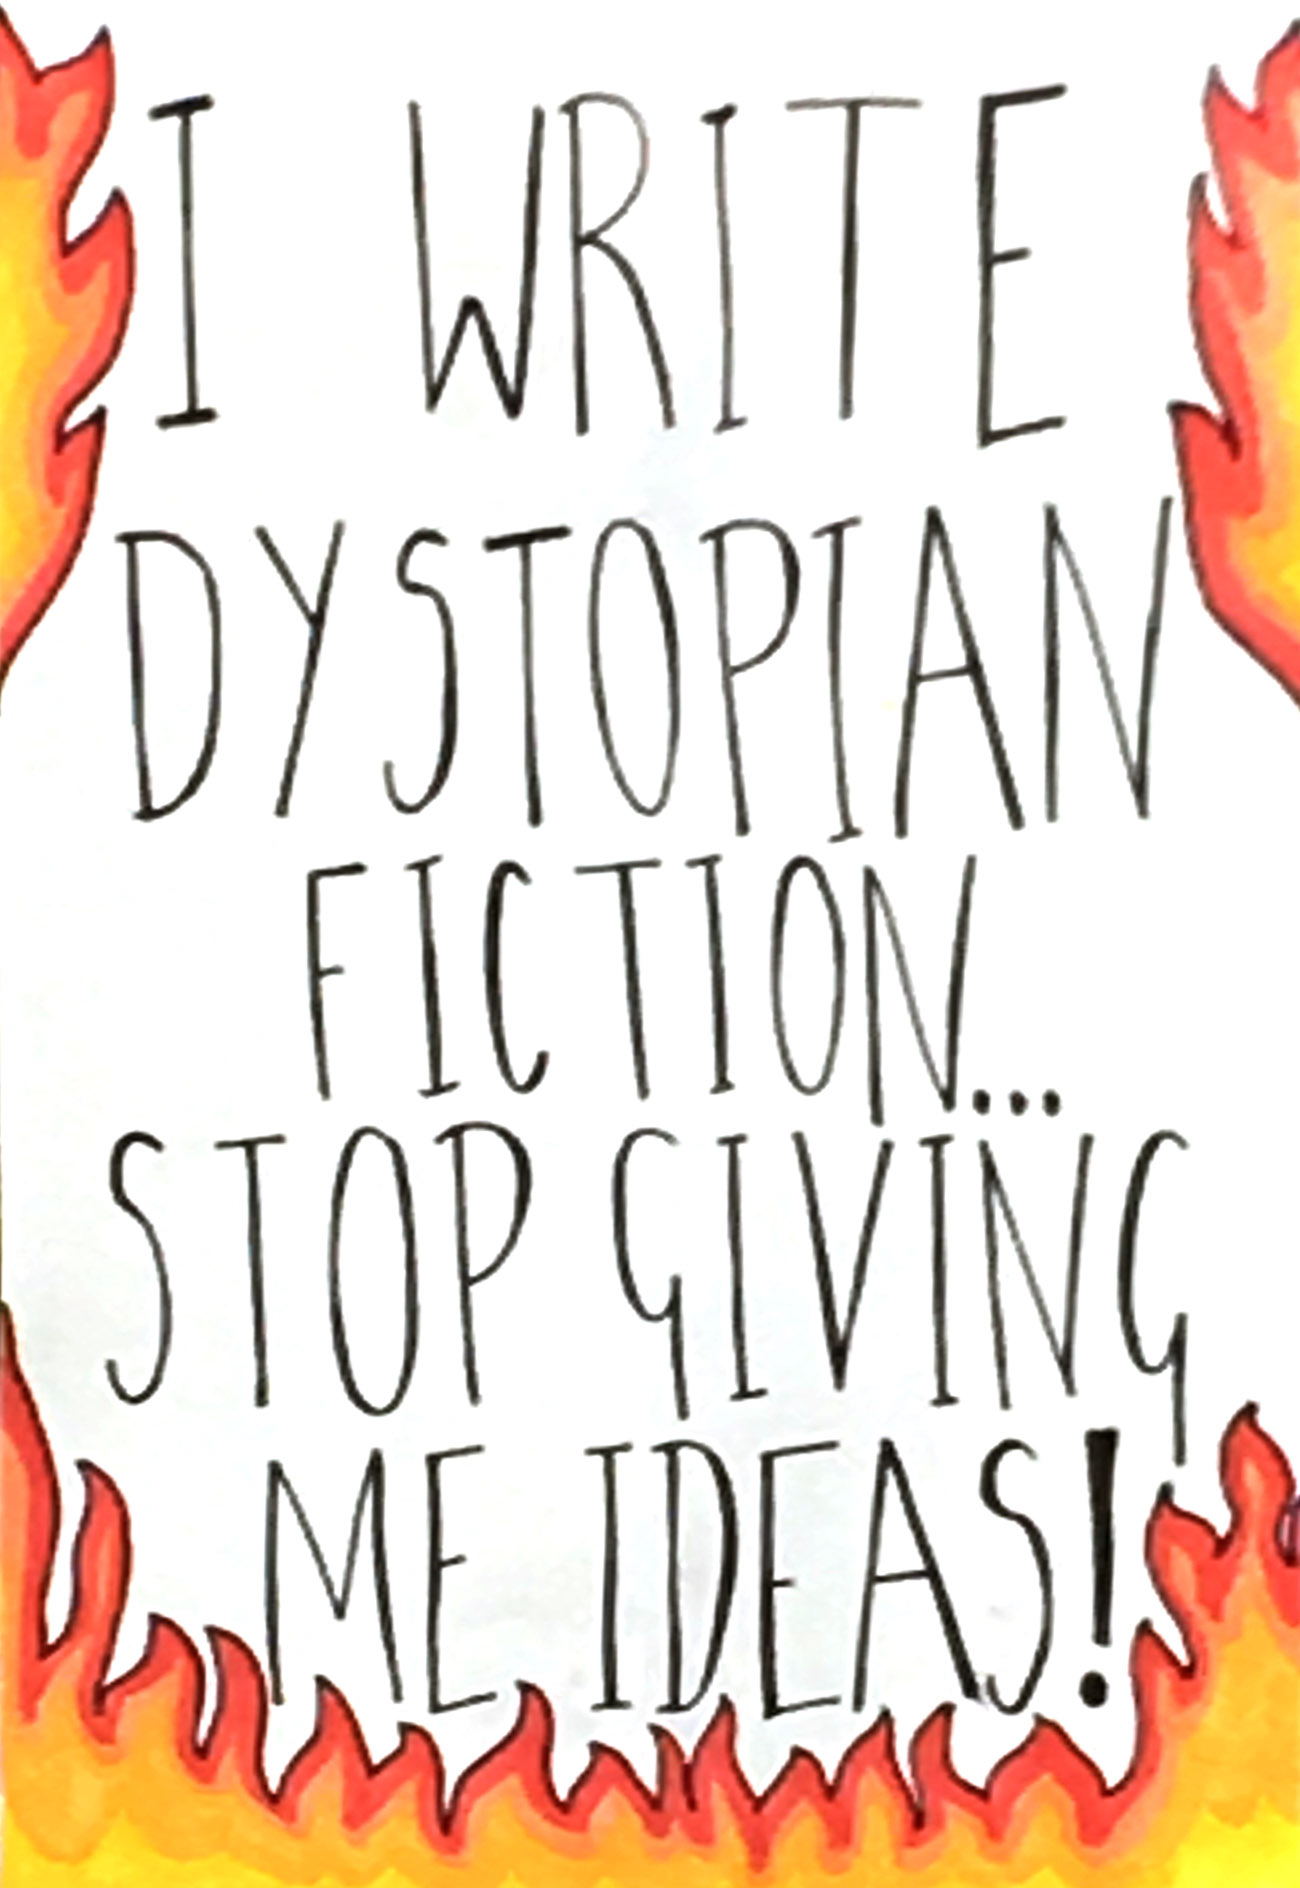 I WRITE
DYSTOPIAN
FICTION...
STOP GIVING
ME IDEAS!